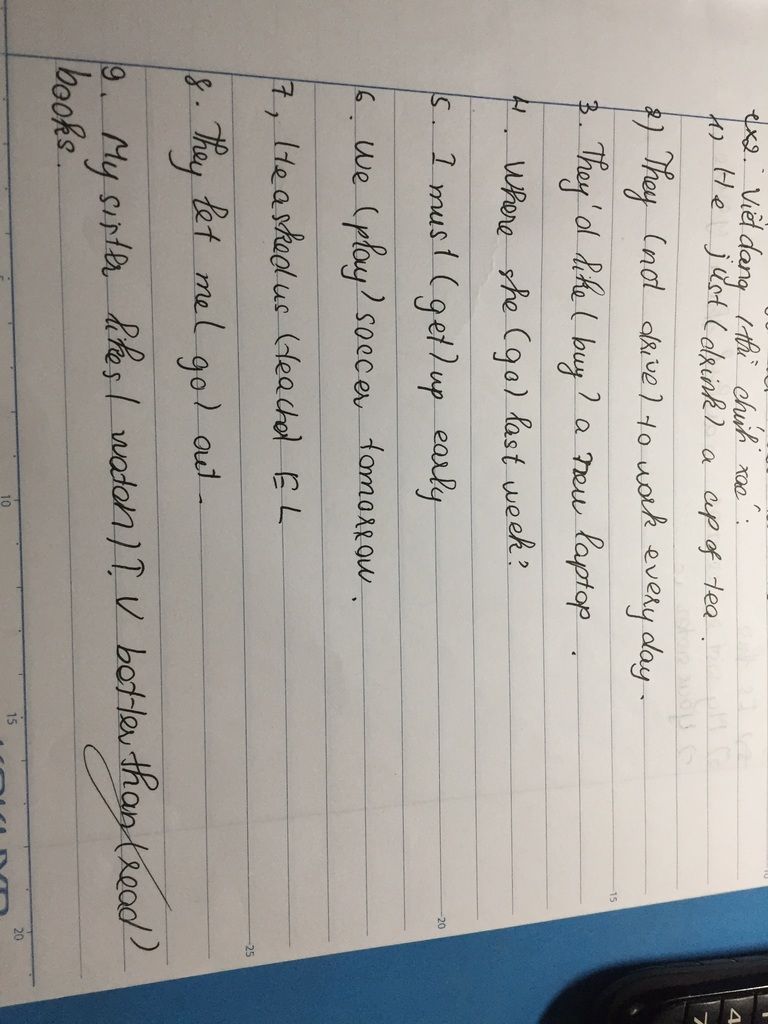 ex2: Viết dạng (thì chính xác:
1) He just (drink) a cup of tea.
2) They (not drive) to work every day.
3. They'd like (buy) a new laptop.
4. Where she (go) last week?
5. I must (get) up early
6. We (play) soccer tomorrow.
7, He asked us (teach) EL
8. They let me (go) out.
9. My sister likes (watch) TV better than (read)
books.
10
15
20
15
20
25